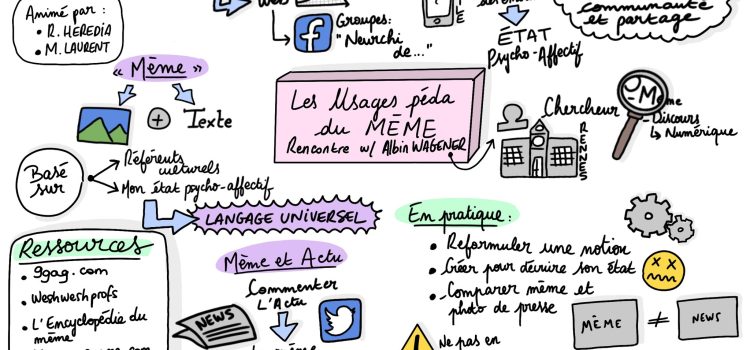 Animé par :
• R. HEREDIA
• M. LAURENT
Groupes:
"Neurchi
de..."
ÉTAT
Psycho-Affectif
communauté
et partage
« Mème »
Texte
Les Usages péda
du MÈME
Rencontre w/ Albin WAGENER
Chercheur
RENNES
- Mème
- Discours
↳ Numérique
Basé
sur
Référents
culturels
Mon état psycho-affectif
LANGAGE UNIVERSEL
Ressources
• 9gag.com
• Weshweshprofs
• L'Encyclopédie du
mème
Mème et Actu
Commenter
L'Actu
NEWS
En pratique :
• Reformuler une notion
• Créer pour décrire son État
• Comparer mème et
photo de presse
MÈME ≠ NEWS
Ne pas en